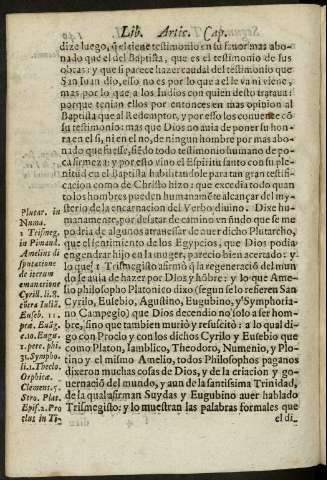 Lib. Artic. Cap.
dize luego, q̃ el tiene testimonio en su fauor mas abo-
nado que el del Baptista, que es el testimonio de sus
obras: y que si parece hazer caudal del testimonio que
San Iuan dio, esso no es por lo que a el le va ni viene,
mas por lo que a los Iudios con quien desto trataua:
porque tenian ellos por entonces en mas opinion al
Baptista que al Redemptor, y por esso los conuence cõ
su testimonio: mas que Dios no auia de poner su hon-
ra en el si, ni en el no, de ningun hombre por mas abo-
nado que fuesse, siẽdo todo testimonio humano de po-
ca firmeza: y por esto vino el Espiritu santo con su ple-
nitud en el Baptista habilitandole para tan gran testifi-
cacion como de Christo hizo: que excedia todo quan
to los hombres pueden humanamẽte alcançar del my-
sterio de la encarnacion del Verbo diuino. Dixe hu
manamente, por desatar de camino vn ñudo que se me
podria de algunos atrauessar de auer dicho Plutarcho,
que el sentimiento de los Egypcios, que Dios podia
engendrar hijo en la muger, parecio bien acertado: y
lo que 1 Trismegisto afirmò q̃ la regeneracion del mun
do le auia de hazer por Dios y hõbre: y lo que Ame-
lio philosopho Platonico dixo (segun se lo refieren San
Cyrilo, Eusebio, Agustino, Eugubino, y Symphoria-
no Campegio) que Dios decendio no solo a ser hom-
bre, sino que tambien murio y resuscitò: a lo qual di-
go con Proclo y con los dichos Cyrilo y Eusebio que
como Platon, Iamblico, Theodoro, Numenio, y Plo-
tino y el mismo Amelio, todos Philosophos paganos
dixeron muchas cosas de Dios, y de la criacion y go-
uernaciõ del mundo, y aun de la santissima Trinidad,
de la qual afirman Suydas y Eugubino auer hablado
Trismegisto: y lo muestran las palabras formales que
el di-
Plutar. in
Numa.
1 Trismeg.
in Pimand.
Amelius di
sputatione
de iterum
emanatione
Cyrill. li. 8.
cõtra Iuliã.
Euseb. 11.
præ. Euãg.
c. 10. Eugu.
1. pere. phi.
31. Sympho.
li. 2. Theolo.
Orphicæ.
Clemens. 5.
Stro. Plat.
Epis. 2. Pro
clus in Ti-